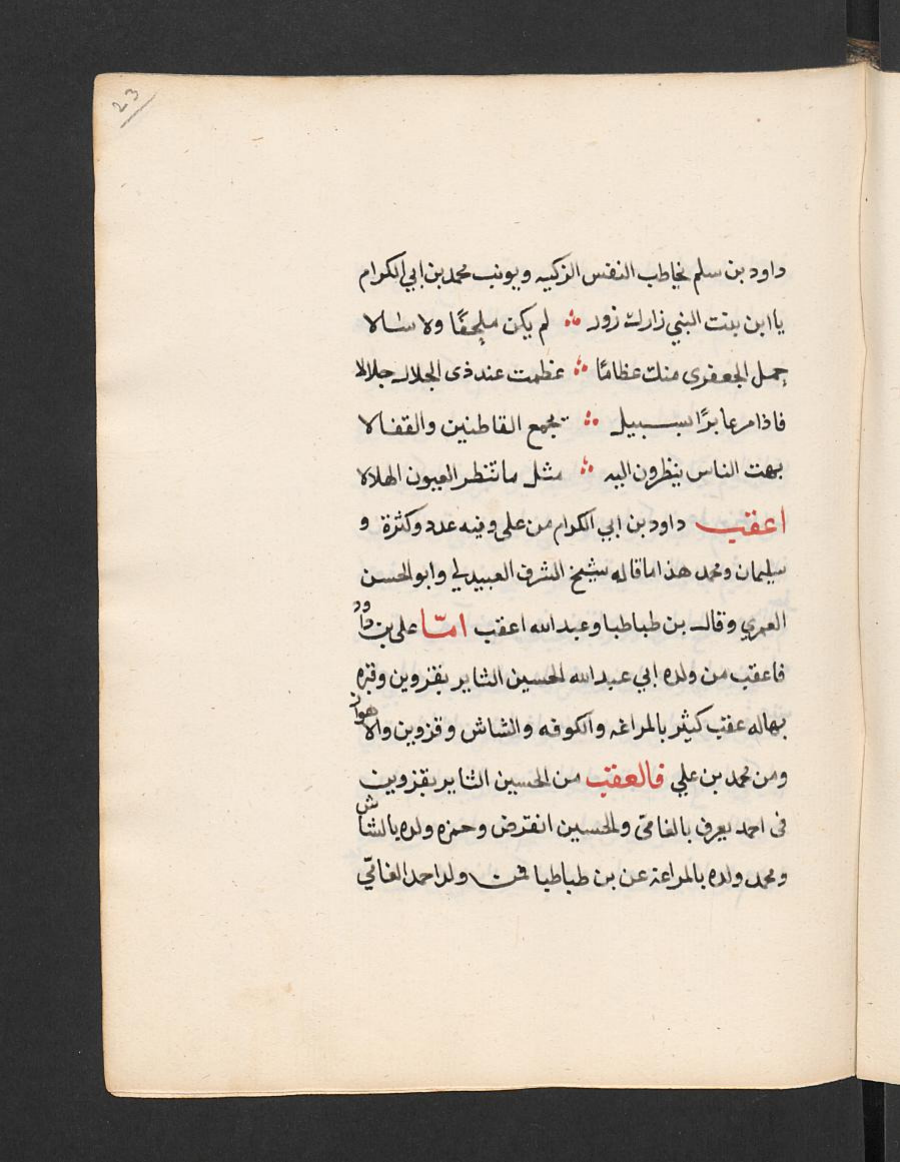 23
داود بن سلم يخاطب النفس الزكيه ويونب محمد بن ابي الكرام
ياابن بنت النبي زارك زور ؞ لم يكن ملحفًا ولا سئالا
حمل الجعفرى منك عظامًا ؞ عظمت عند ذى الجلال جلالا
فاذا مر عابرًا بسبيل ؞ تجمع القاطنين والقفالا
بهت الناس ينظرون اليه ؞ مثل ما تنظر العيون الهلالا
اعقب داود بن ابي الكرام من على وفيه عدد وكثرة و
سليمان ومحمد هذا ما قاله شيخ الشرف العبيدلي وابو الحسن
العمري وقال بن طباطبا وعبد الله اعقب امّا على بن داود
فاعقب من ولده ابي عبد الله الحسين الثاير بقزوين وقبره
بها له عقب كثير بالمراغه والكوفه والشاش وقزوين والاهواز
ومن محمد بن علي فالعقب من الحسين الثاير بقزوين
فى احمد يعرف بالغامى والحسين انقرض وحمزه ولده بالشاش
ومحمد ولده بالمراغة عن بن طباطبا ولد احمد الغامّي